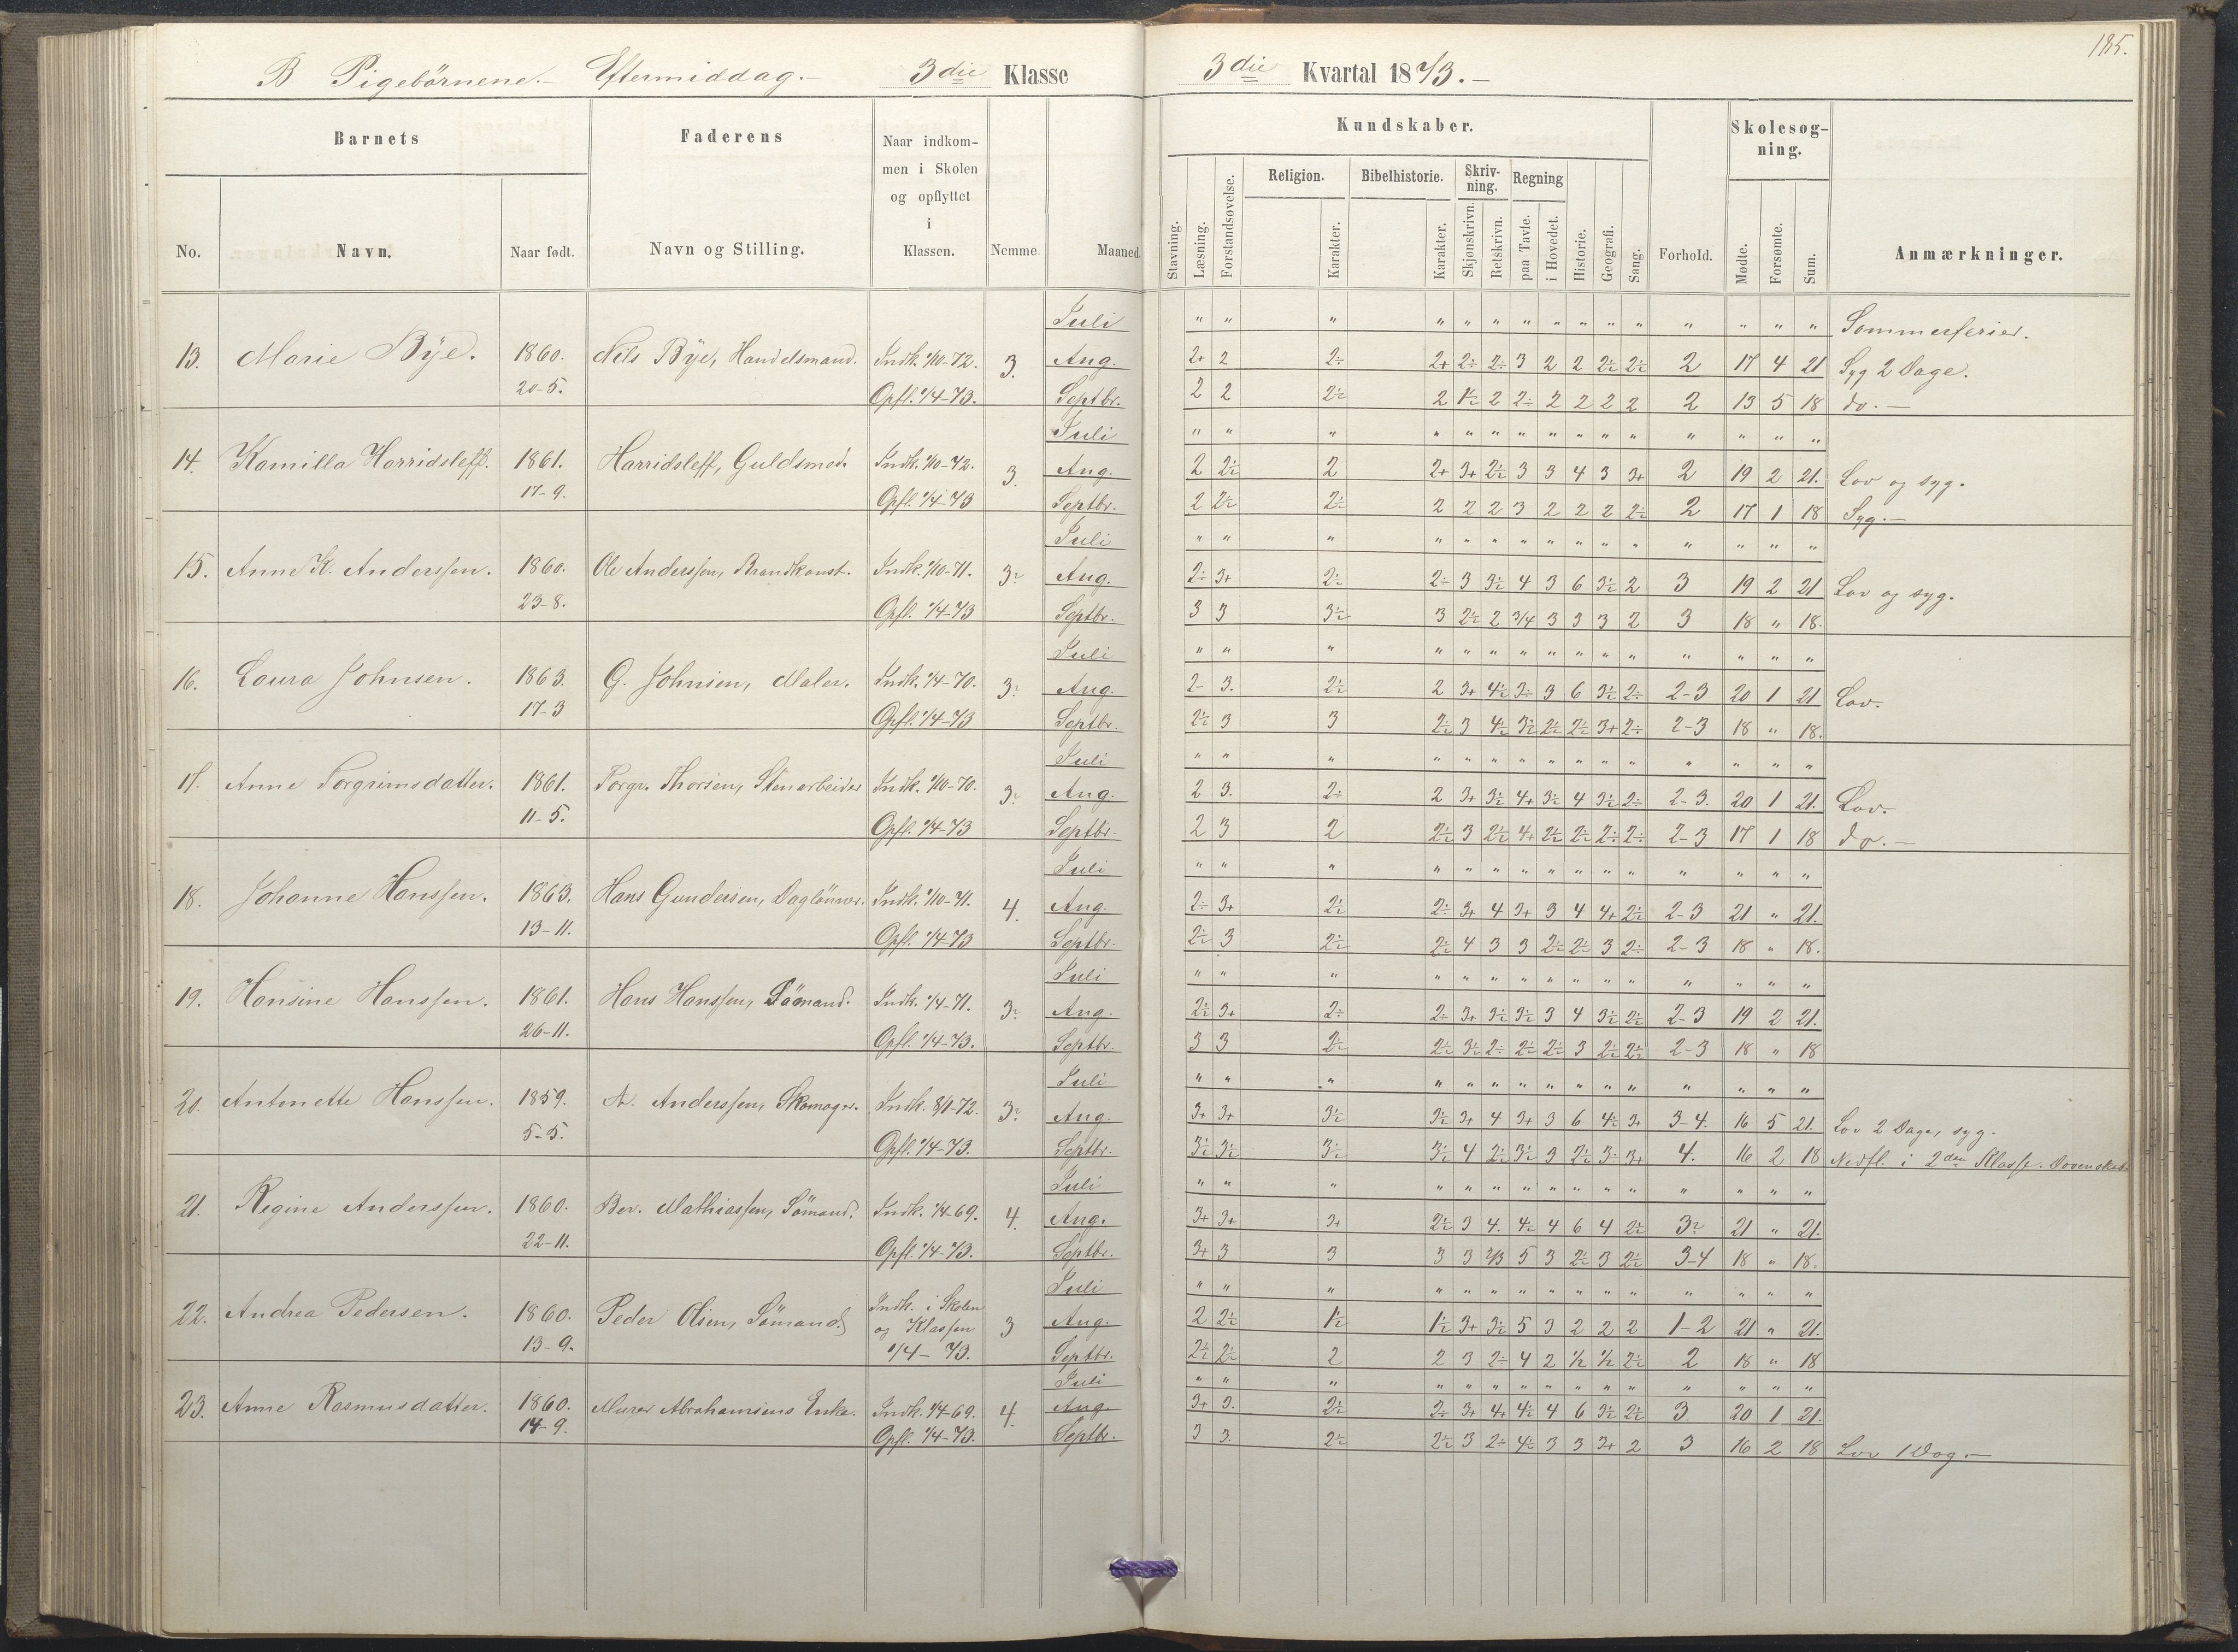 185.
B Pigebörnene.- Eftermiddag.- 3die Klasse 3die Kvartal 1873.-
Barnets Faderens Naar indkommen i Skolen og opflyttet i Klassen. Nemme. Maaned.
No. Navn. Naar født. Navn og Stilling.
Kundskaber. Forhold. Skolesøgning. Anmærkninger.
Stavning. Læsning. Forstandsøvelse. Religion. Karakter. Bibelhistorie. Karakter. Skrivning. Skjønskrivn. Retskrivn. Regning paa Tavle. i Hovedet. Historie. Geografi. Sang. Mødte. Forsømte. Sum.
Juli " " " " " " " " " " " " " " " Sommerferier.
13. Marie Bÿe. 1860. Nils Bÿe, Handelsmand. Indk. 1/10-72. 3. Aug. 2+ 2 2÷ 2+ 2÷ 2÷ 3 2 2 2÷ 2÷ 2 17 4 21 Syg 2 Dage.
20-5. Opfl. 1/4-73. Septbr. 2 2 2÷ 2 1÷ 2 2÷ 2 2 2 2 2 13 5 18 do.-
Juli " " " " " " " " " " " " " " "
14. Kamilla Harridsleff. 1861. Harridsleff, Guldsmed. Indk. 1/10-72. 3. Aug. 2 2÷ 2 2+ 3+ 2÷ 3 3 4 3 3+ 2 19 2 21. Lov og syg.
17-9. Opfl. 1/4-73 Septbr. 2 2÷ 2÷ 2 2 2 3 2 2 2 2÷ 2 17 1 18 Syg.-
Juli " " " " " " " " " " " " " " "
15. Anne K. Anderssen. 1860. Ole Anderssen, Brandkonst. Indk. 1/10-71. 3÷ Aug. 2÷ 3+ 2÷ 2÷ 3 3÷ 4 3 6 3÷ 2 3 19 2 21 Lov og syg.
23-8. Opfl. 1/4-73 Septbr. 3 3 3÷ 3 2÷ 2 3/4 3 3 3 2 3 18 " 18.
Juli " " " " " " " " " " " " " " "
16. Laura Johnsen. 1863. G. Johnsen, Maler. Indk. 1/4-70. 3÷ Aug. 2- 3. 2÷ 2 3+ 4÷ 3÷ 3 6 3÷ 2÷ 2-3 20 1 21 Lov.
17-3 Opfl. 1/4-73 Septbr. 2÷ 3 3 2÷ 3 4÷ 3÷ 2÷ 2÷ 3+ 2÷ 2-3 18 " 18.
Juli " " " " " " " " " " " " " " "
17. Anne Torgrimsdatter. 1861. Torgr. Thorsen, Stenarbeider Indk. 1/10-70. 3÷ Aug. 2 3. 2÷ 2 3+ 3÷ 4+ 3÷ 4 3÷ 2÷ 2-3. 20 1 21. Lov.
11-5. Opfl. 1/4-73 Septbr. 2 3 2 2÷ 3 2÷ 4+ 2÷ 2÷ 2÷ 2÷ 2-3 17 1 18 do.-
Juli " " " " " " " " " " " " " " "
18. Johanne Hanssen. 1863. Hans Gundersen, Daglönner. Indk. 1/10-71. 4. Aug. 2÷ 3+ 2÷ 2÷ 3+ 4 3+ 3 4 4+ 2÷ 2-3 21 " 21.
13-11. Opfl. 1/4-73 Septbr. 2÷ 3 2÷ 2÷ 4 3 3 2÷ 2÷ 3 2÷ 2-3 18 " 18.
Juli " " " " " " " " " " " " " " "
19. Hansine Hanssen. 1861. Hans Hanssen, Sömand. Indk. 1/4-71. 3÷ Aug. 2÷ 3+ 2÷ 2÷ 3+ 3÷ 3÷ 3 4 3÷ 2÷ 2-3 19 2 21.
26-11. Opfl. 1/4-73. Septbr. 3 3 2÷ 2÷ 3÷ 2÷ 2÷ 2÷ 3 2÷ 2÷ 2-3 18 " 18
Juli " " " " " " " " " " " " " " "
20. Antonette Hanssen. 1859. A. Anderssen, Skomager. Indk. 8/1-72. 3÷ Aug. 3+ 3+ 3÷ 3÷ 3+ 4 3+ 3 6 4÷ 3+ 3-4. 16 5 21. Lov 2 Dage, syg.
5-5. Opfl. 1/4-73. Septbr. 3÷ 3÷ 3÷ 3÷ 4 2÷ 3÷ 3 2÷ 3÷ 3+ 4. 16 2 18 Nedfl. i 2den Klasse. Dovenskab
Juli " " " " " " " " " " " " " " "
21. Regine Anderssen. 1860. Ber. Mathiassen, Sömand. Indk. 1/4-69. 4. Aug. 3+ 3+ 3+ 2÷ 3 4. 4÷ 4 6 4 2÷ 3÷ 21 " 21.
22-11. Opfl. 1/4-73. Septbr. 3+ 3 3 3 3 2/3 5 3 2÷ 3 2÷ 3-4 18 " 18.
Juli " " " " " " " " " " " " " " "
22. Andrea Pedersen. 1860. Peder Olsen, Sömand. Indk. i Skolen og Klassen 3 Aug. 2 2÷ 1÷ 1÷ 3+ 3÷ 5 3 2 2 2 1-2 21 " 21.
13-9. 1/4-73. Septbr. 2÷ 2÷ 2 2 3 2÷ 4 2 1/2 1/2 2÷ 2 18 " 18
Juli " " " " " " " " " " " " " " "
23. Anne Rasmusdatter. 1860. Murer Abrahamsens Enke. Indk. 1/4-69. 4. Aug. 3+ 3. 2÷ 2÷ 3+ 4+ 4÷ 4 6 3÷ 2÷ 3 20 1 21.
14-9. Opfl. 1/4-73. Septbr. 3 3. 2÷ 2÷ 3 2÷ 4÷ 3 3 3+ 2 3 16 2 18 Lov 1 Dag.-